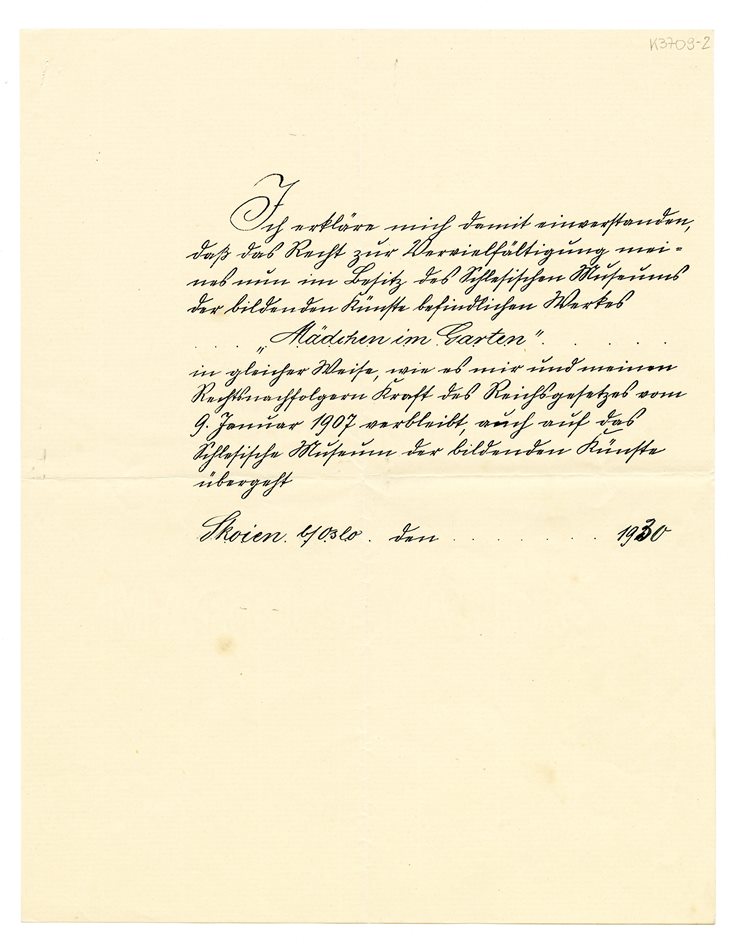 K3709-2
Ich erkläre mich damit einverstanden,
daß das Recht zur Vervielfältigung mei-
nes nun im Besitz des Schlesischen Museums
der bildenden Künste befindlichen Werkes
. . . . „Mädchen im Garten". . . . . .
in gleicher Weise, wie es mir und meinen
Rechtsnachfolgern Kraft des Reichsgesetzes vom
9. Januar 1907 verbleibt, auch auf das
Schlesische Museum der bildenden Künste
übergeht
Skoien. b/Oslo. den . . . . . . . . 1930